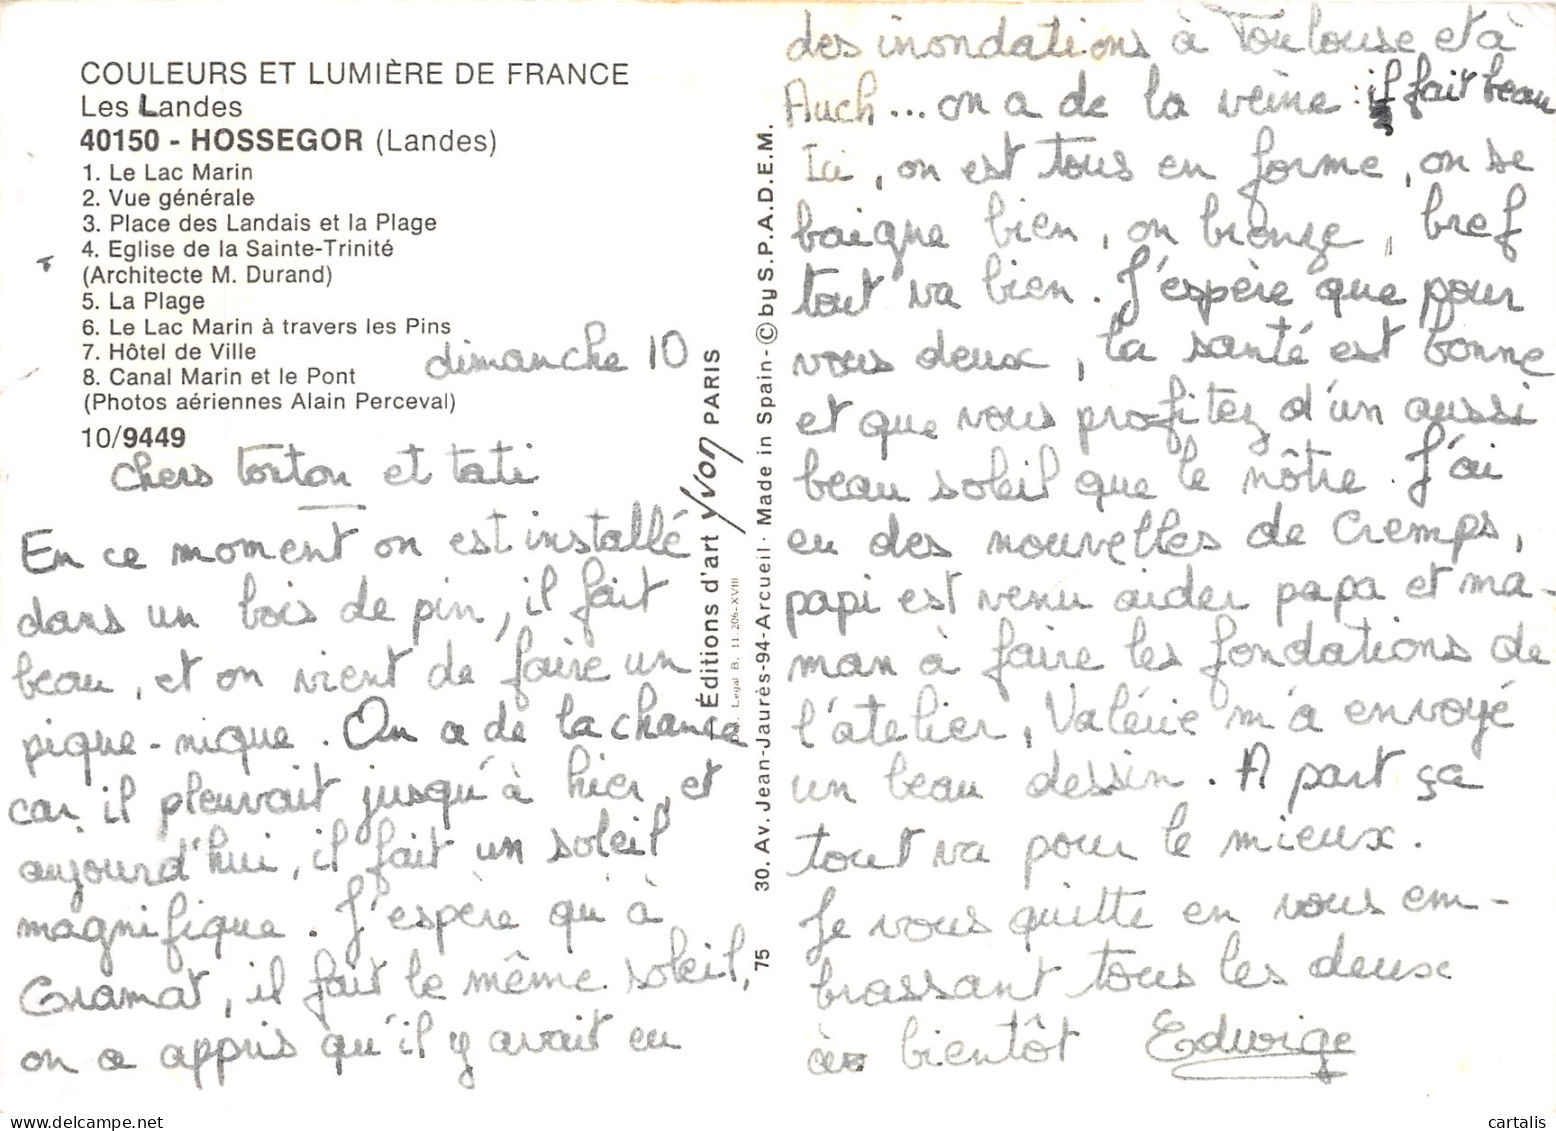 COULEURS ET LUMIÈRE DE FRANCE
Les Landes
40150 - HOSSEGOR (Landes)
1. Le Lac Marin
2. Vue générale
3. Place des Landais et la Plage
4. Eglise de la Sainte-Trinité
(Architecte M. Durand)
5. La Plage
6. Le Lac Marin à travers les Pins
7. Hôtel de Ville
8. Canal Marin et le Pont
(Photos aériennes Alain Perceval)
10/9449
dimanche 10
chers tonton et tati
En ce moment on est installé
dans un bois de pin, il fait
beau, et on vient de faire un
pique-nique. On a de la chance
car il pleuvait jusqu'à hier, et
aujourd'hui, il fait un soleil
magnifique. J'espère qu'à
Gramat, il fait le même soleil,
on a appris qu'il y avait eu
Éditions d'art Yvon PARIS
Legal B. 11.206-XVIII
75 30. Av. Jean-Jaurès-94-Arcueil - Made in Spain - © by S.P.A.D.E.M.
des inondations à Toulouse et à
Auch... on a de la veine il fait beau
Ici, on est tous en forme, on se
baigne bien, on bronze, bref
tout va bien. J'espère que pour
vous deux, la santé est bonne
et que vous profitez d'un aussi
beau soleil que le nôtre. J'ai
eu des nouvelles de Cremps,
papi est venu aider papa et ma-
man à faire les fondations de
l'atelier, Valérie m'a envoyé
un beau dessin. A part ça
tout va pour le mieux.
Je vous quitte en vous em-
brassant tous les deux
à bientôt Edwige
delcampe.net
cartalis